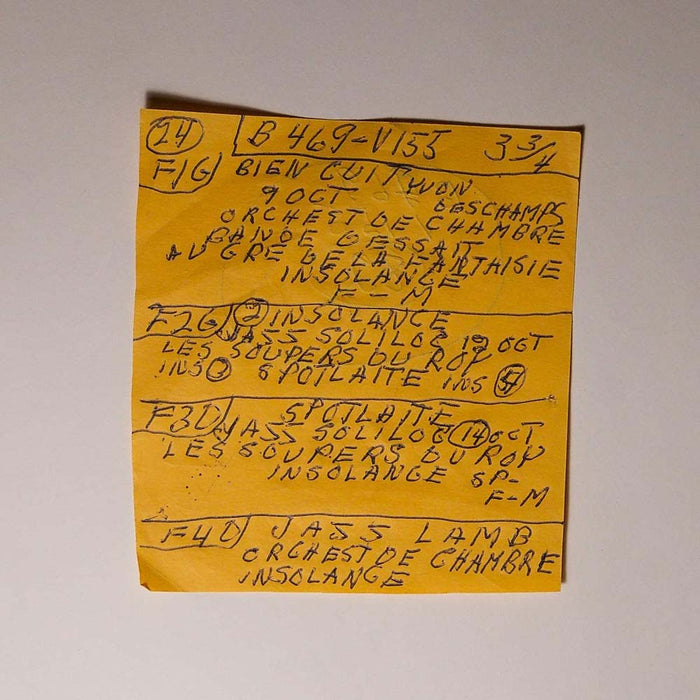 24 B 469-V155 3 3/4
F1G BIEN CUIT YVON
9 OCT DESCHAMPS
ORCHEST DE CHAMBRE
BANDE DESSAIT
AU GRE DE LA FANTHISIE
INSOLANGE
F-M
F2G 2 INSOLANGE
JASS SOLILOC 19 OCT
LES SOUPERS DU ROY
INS SPOTLAITE INS 4
F3D SPOTLAITE
JASS SOLILOC 14 OCT
LES SOUPERS DU ROY
INSOLANGE SP-
F-M
F4D JASS LAMB
ORCHEST DE CHAMBRE
INSOLANGE